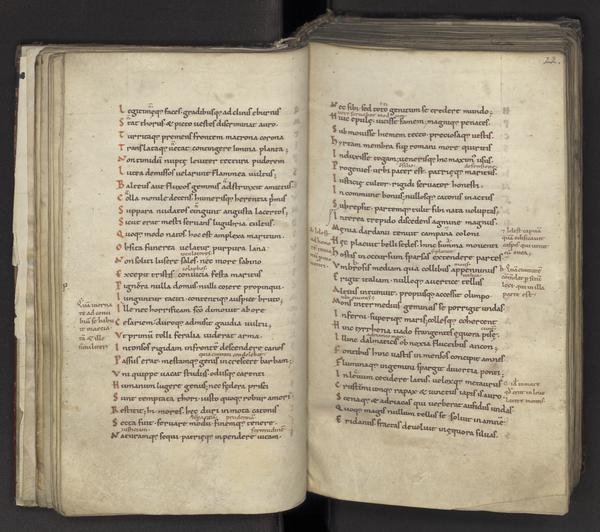 Legitimęq; faces gradibusq; adclinis eburnis
Stat thorus & picto uestes discriminat auro.
Turritaq; premens frontem matrona corona
Translata uetat contingere limina planta;
Non timidū nuptę leuiter tectura pudorem
Lutea demissos uelarunt flammea uultus;
Balteus aut fluxos gemmis adstrinxit amictus
Colla monile decens humerisq; herentia primis
Suppara nudatos cingunt angusta lacertos;
Sicut erat mesti seruans lugubria cultus.
Quoq; modo natos hoc est amplexa maritum.
Obsita funerea uelatur purpura lana.
Non soliti lusere sales nec more sabino
Excepit tristis conuicia festa maritus
Pignora nulla domus nulli coiere propinqui.
Iunguntur taciti contentiq; auspice bruto;
Ille nec horrificam sc̄o dimouit ab ore
Cesariem duroq; admisit gaudia uultu;
Ut primū tolli feralia uiderat arma
Intonsos rigidam infrontē descendere canos
Passus erat mestamq; genis increscere barbam;
Uni quippe uacat studiis odiisq; carenti
Humanum lugere genus; nec foedera prisci
Sunt temptata thori; iusto quoq; robur amori
Restitit; hi mores, hec duri inmota catonis
Secta fuit seruare modū finemq; tenere
Naturamq; sequi patrięq; inpendere uitam
22.
Nec sibi sed toto genitum se credere mundo;
Huic epulę uicisse famem, magniq; penates
Submouisse hiemem tecto, preciosaq; uestis.
Hyrtam membra sup romani more quiritis
Induxisse togam; uenerisq; hic maximus usus.
Progenies urbi pater est patrięq; maritus.
Iusticię cultor rigidi seruator honesti.
In commune bonus; nullosq; catonis in actus
Subrepsit partemq; tulit sibi nata uoluptas;
Interea trepido discedens agmine magnus.
Magna dardanii tenuit campana coloni
Hęc placuit belli sedes. hinc summa mouenti
Hostis in occursum sparsas extendere partes
Umbrosis mediam qua collibus appenninus
Erigit italiam. nulloq; auertice tellus
Altius intumuit. propiusq; accessit olimpo
Mons inter medius geminas se porrigit undas
Inferni superiq; maris; collesq; cohercent
Hinc tyrrhena uado frangentes equora pise
Illinc dalmaticis obnoxia fluctibus ancon;
Fontibus hinc uastis inmensos concipit amnes
Fluminaq; in gemini spargit diuortia ponti;
In leuum cecidere latus. ueloxq; metaurus
Crustumiumq; rapax & iunctus sapis isauro.
Senaq; & adriacas qui uerberat aufidus undas
Quoq; magis nullum tellus se soluit in amnē
Eridanus fractas deuoluit in equora siluas.